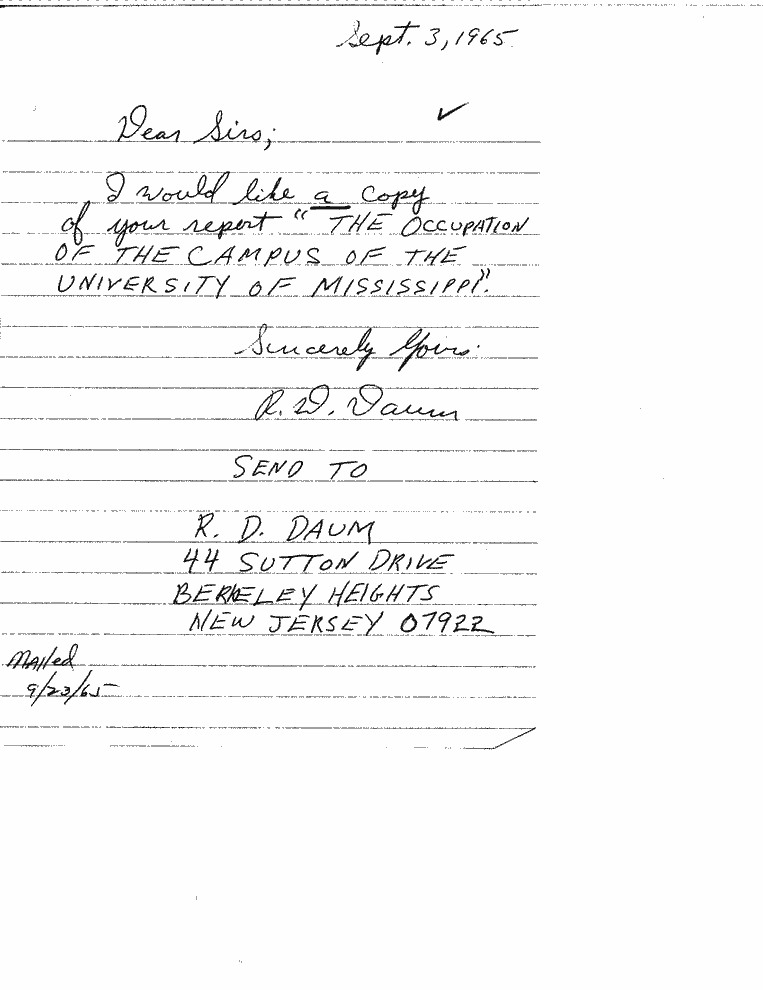 Sept. 3, 1965
Dear Sirs;
I would like a copy
of your report "THE OCCUPATION
OF THE CAMPUS OF THE
UNIVERSITY OF MISSISSIPPI".
Sincerely Yours.
R. D. Daum
SEND TO
R. D. DAUM
44 SUTTON DRIVE
BERKELEY HEIGHTS
NEW JERSEY 07922
Mailed
9/23/65